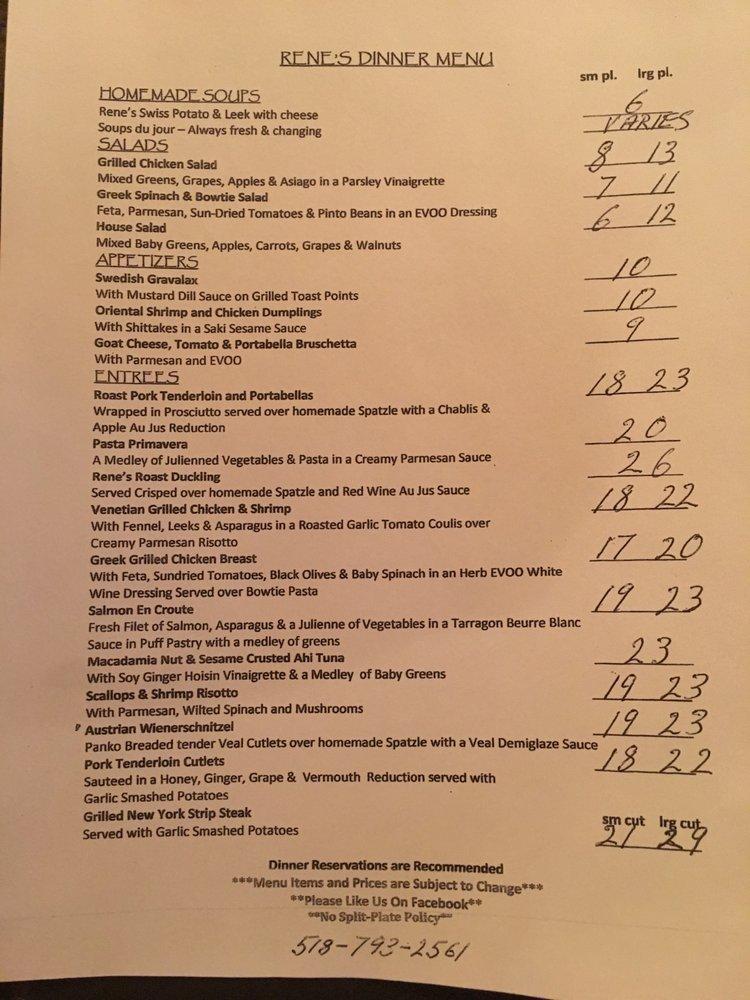 RENE'S DINNER MENU
sm pl. lrg pl.
HOMEMADE SOUPS
Rene's Swiss Potato & Leek with cheese 6
Soups du jour – Always fresh & changing VARIES
SALADS
Grilled Chicken Salad 8 13
Mixed Greens, Grapes, Apples & Asiago in a Parsley Vinaigrette
Greek Spinach & Bowtie Salad 7 11
Feta, Parmesan, Sun-Dried Tomatoes & Pinto Beans in an EVOO Dressing
House Salad 6 12
Mixed Baby Greens, Apples, Carrots, Grapes & Walnuts
APPETIZERS
Swedish Gravalax 10
With Mustard Dill Sauce on Grilled Toast Points
Oriental Shrimp and Chicken Dumplings 10
With Shittakes in a Saki Sesame Sauce
Goat Cheese, Tomato & Portabella Bruschetta 9
With Parmesan and EVOO
ENTREES
Roast Pork Tenderloin and Portabellas 18 23
Wrapped in Prosciutto served over homemade Spatzle with a Chablis &
Apple Au Jus Reduction
Pasta Primavera 20
A Medley of Julienned Vegetables & Pasta in a Creamy Parmesan Sauce
Rene's Roast Duckling 26
Served Crisped over homemade Spatzle and Red Wine Au Jus Sauce
Venetian Grilled Chicken & Shrimp 18 22
With Fennel, Leeks & Asparagus in a Roasted Garlic Tomato Coulis over
Creamy Parmesan Risotto
Greek Grilled Chicken Breast 17 20
With Feta, Sundried Tomatoes, Black Olives & Baby Spinach in an Herb EVOO White
Wine Dressing Served over Bowtie Pasta
Salmon En Croute 19 23
Fresh Filet of Salmon, Asparagus & a Julienne of Vegetables in a Tarragon Beurre Blanc
Sauce in Puff Pastry with a medley of greens
Macadamia Nut & Sesame Crusted Ahi Tuna 23
With Soy Ginger Hoisin Vinaigrette & a Medley of Baby Greens
Scallops & Shrimp Risotto 19 23
With Parmesan, Wilted Spinach and Mushrooms
Austrian Wienerschnitzel 19 23
Panko Breaded tender Veal Cutlets over homemade Spatzle with a Veal Demiglaze Sauce
Pork Tenderloin Cutlets 18 22
Sauteed in a Honey, Ginger, Grape & Vermouth Reduction served with
Garlic Smashed Potatoes
Grilled New York Strip Steak sm cut lrg cut
Served with Garlic Smashed Potatoes 21 29
Dinner Reservations are Recommended
***Menu Items and Prices are Subject to Change***
**Please Like Us On Facebook**
**No Split-Plate Policy**
518-793-2561